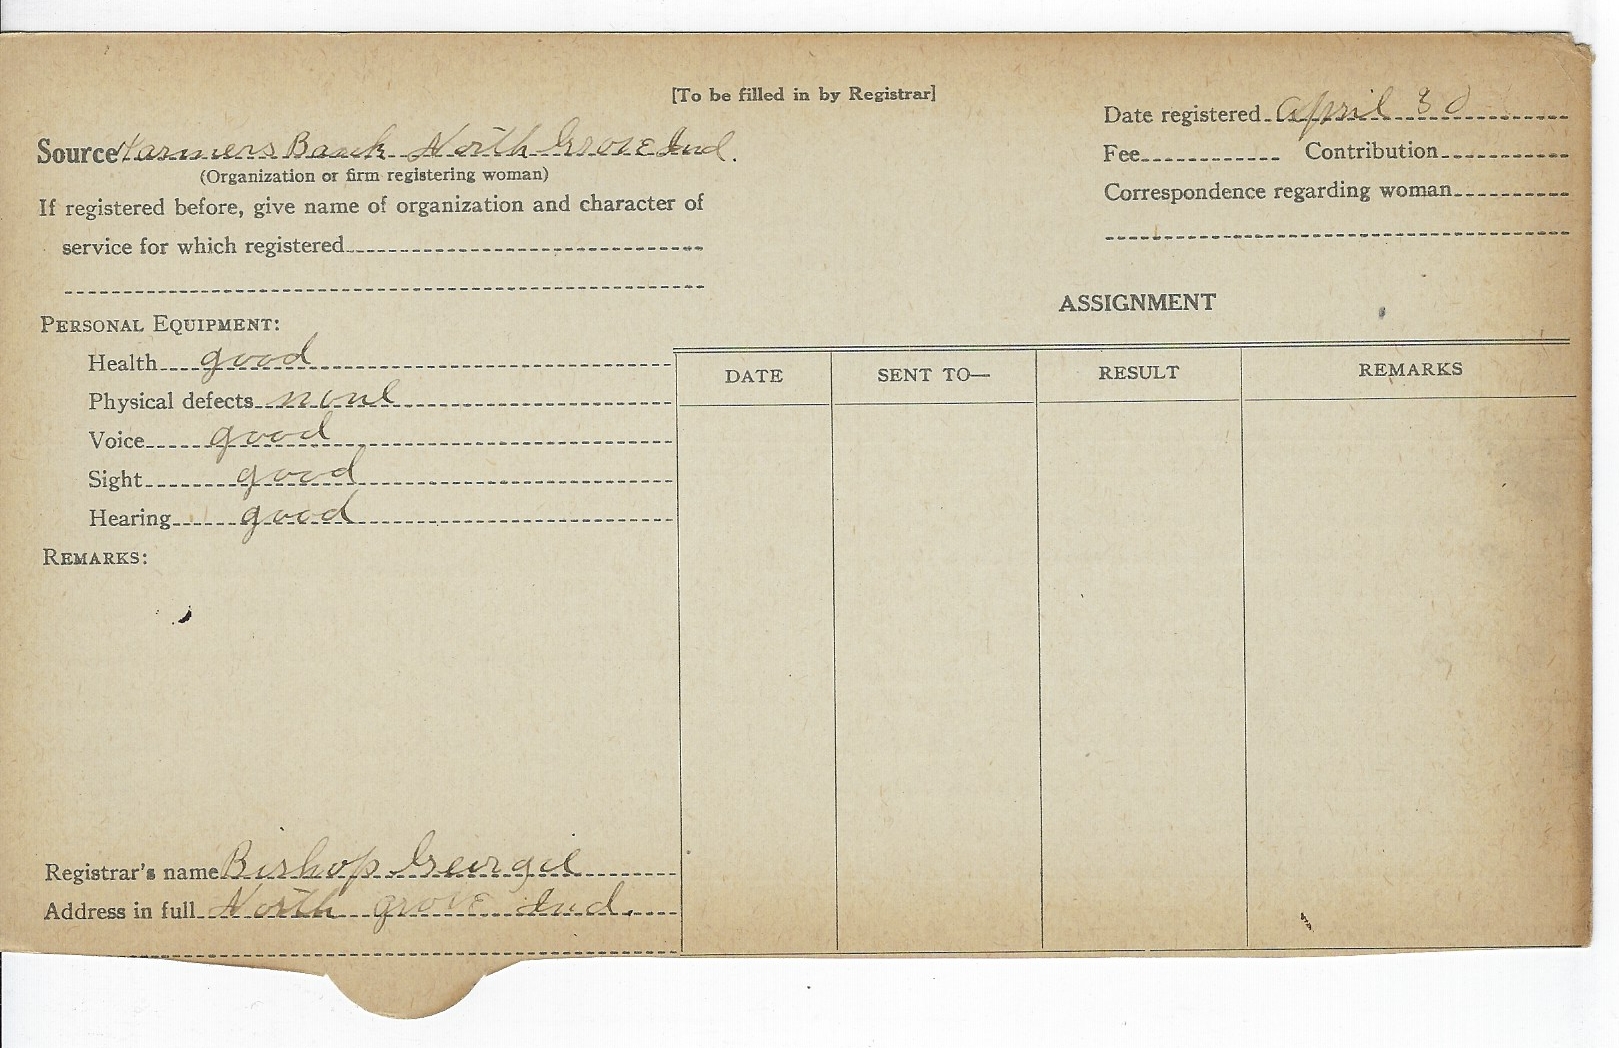 [To be filled in by Registrar]
Date registered April 30
Source Farmers Baank North Grove Ind.
(Organization or firm registering woman)
Fee Contribution
If registered before, give name of organization and character of
service for which registered
Correspondence regarding woman
ASSIGNMENT
PERSONAL EQUIPMENT:
Health good
Physical defects none
Voice good
Sight good
Hearing good
REMARKS:
DATE SENT TO— RESULT REMARKS
Registrar's name Bishop Georgie
Address in full North grove Ind.